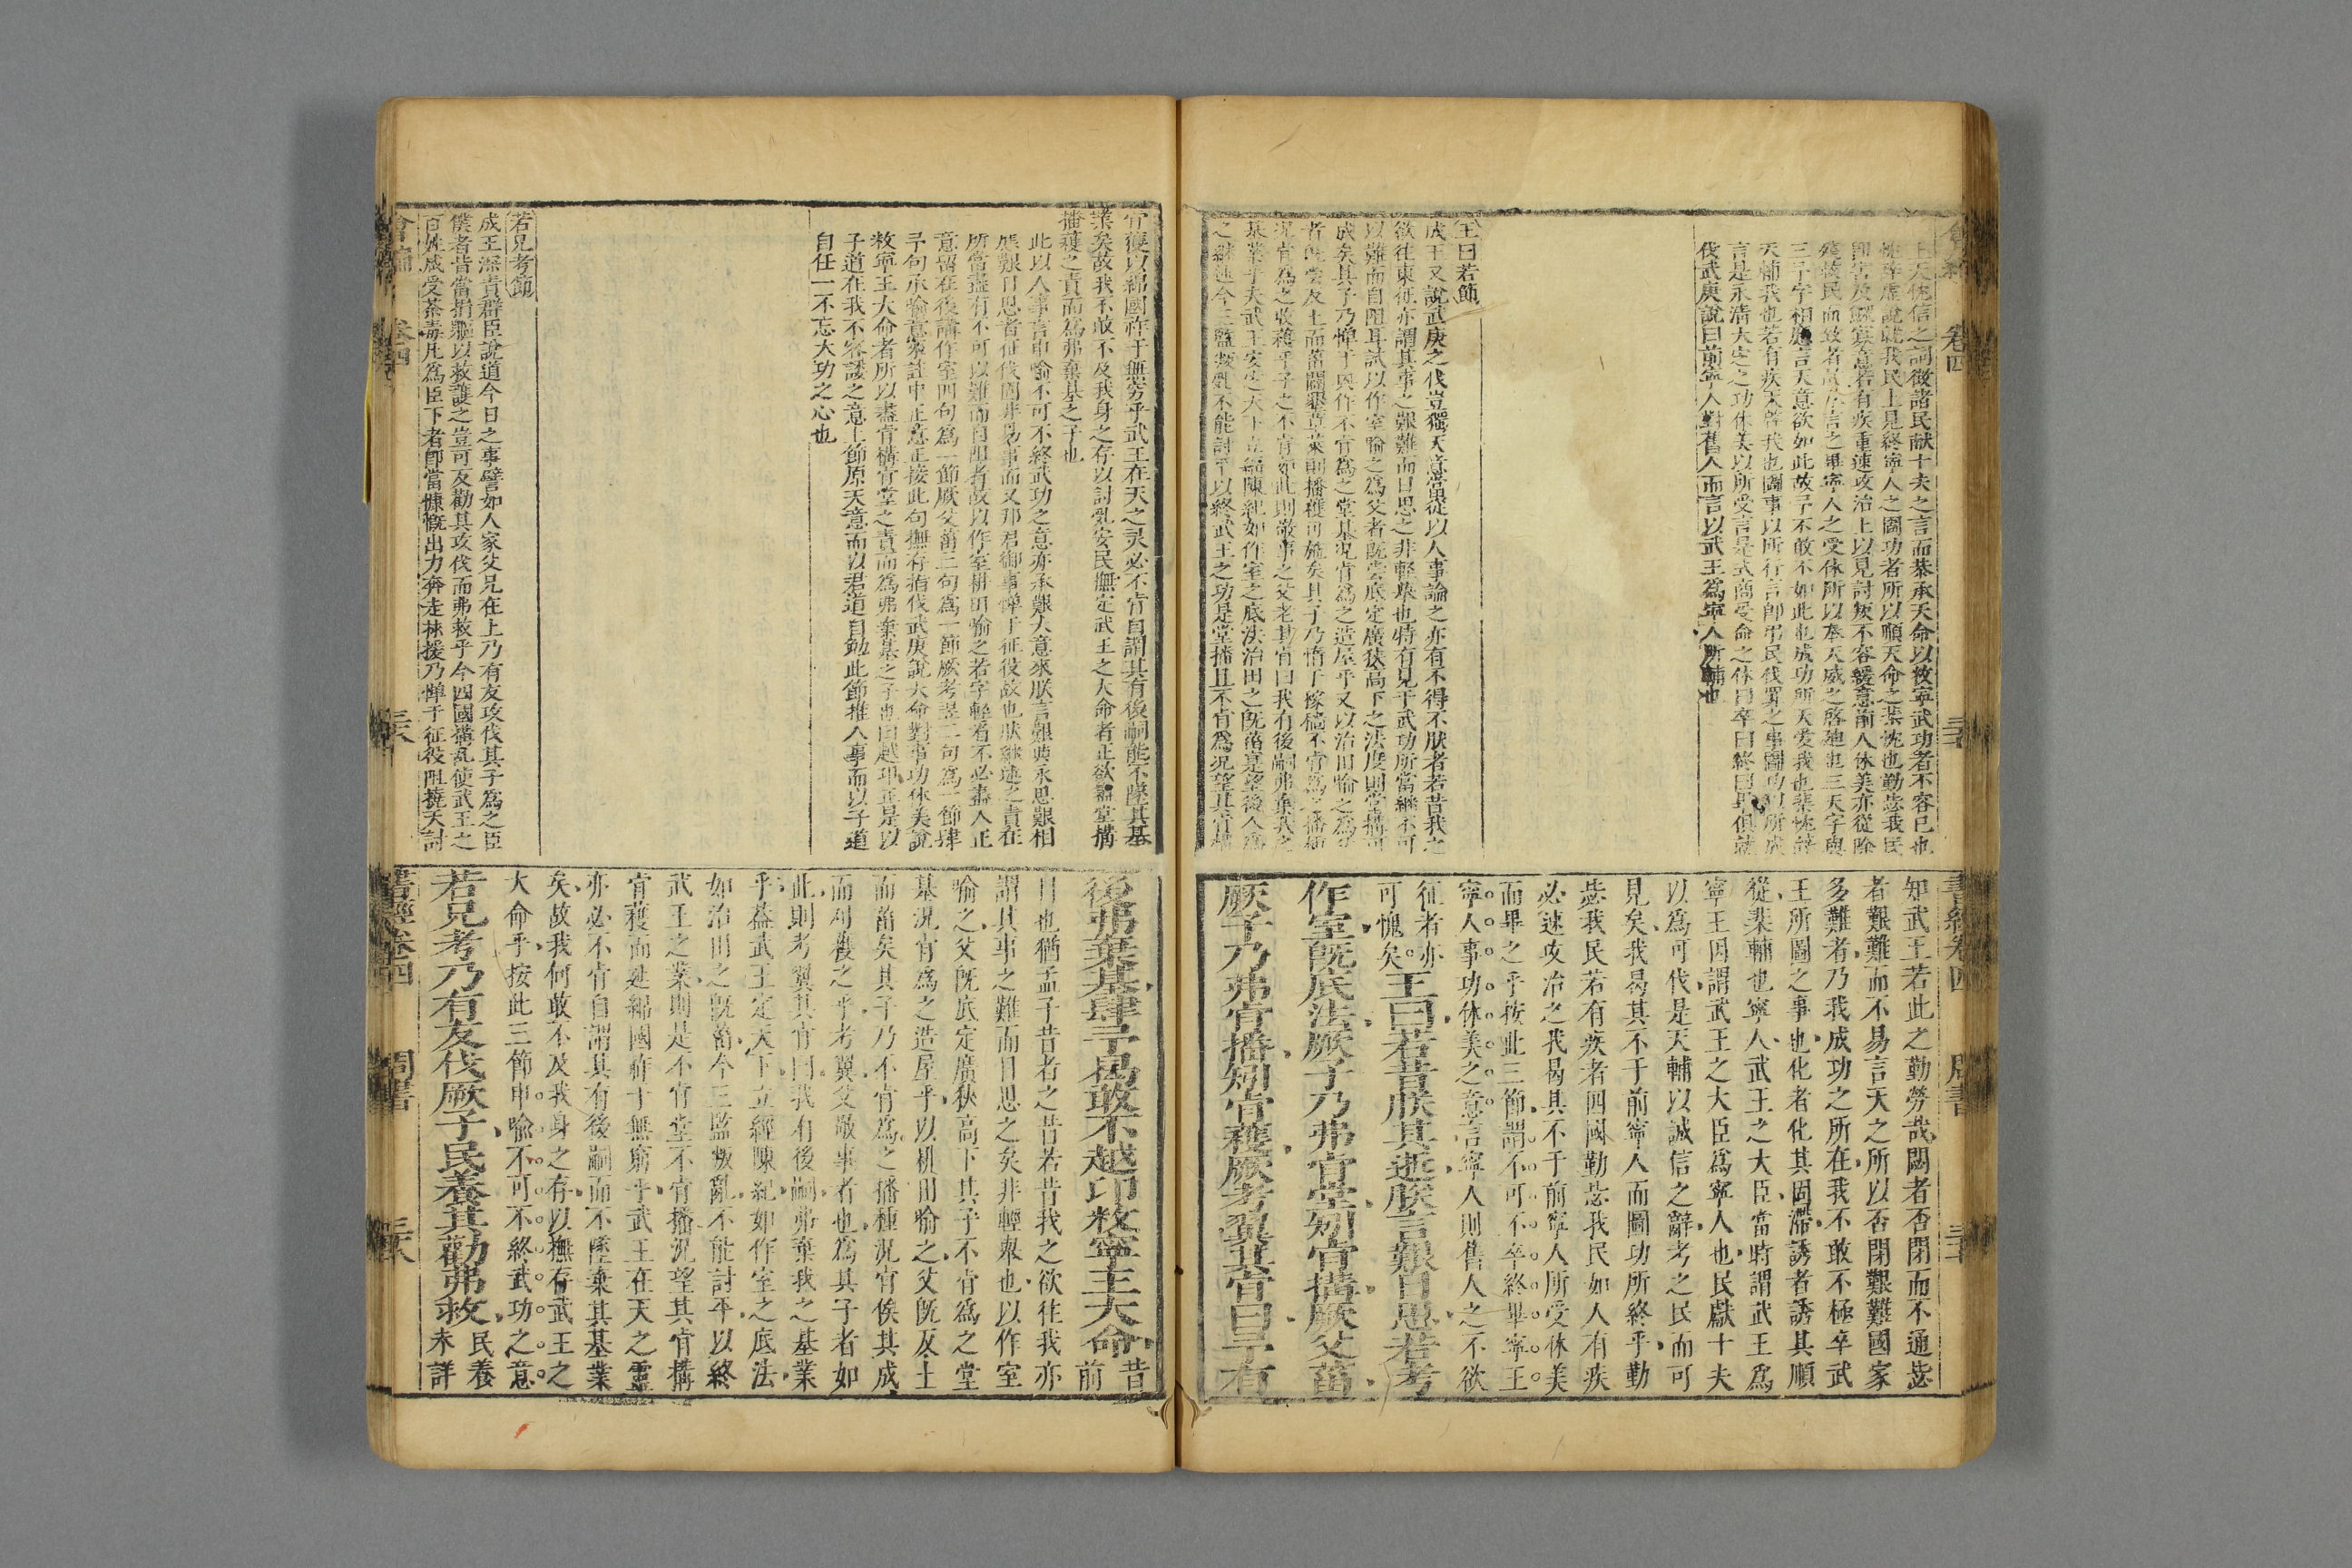 卷四
上天忱信之詞徵諸民献十夫之言而恭承天命以救寧武功者不容已也
忱辭虚說就我民上見終寧人之圖功者所以順天命之棐忱也勤毖我民
天輔我也若有疾天啓我也圖事以所行言卽弔民伐罪之事圖功以所成
言是永清大定之功休美以所受言是式商受命之休曰卒曰終曰畢俱就
伐武庚說曰前寧人對舊人而言以武王爲寧人所輔也
王曰若節
成王又說武庚之伐豈獨天意當從以人事論之亦有不得不朕者若昔我之
欲往東征亦謂其事之艱難而日思之非輕舉也特有見于武功所當繼不可
以難而自阻耳試以作室喻之爲父者既嘗底定廣狹高下之法度則堂搆可
成矣其子乃憚于興作不肯爲之堂基况肯爲之造屋乎又以治田喻之爲父
者既嘗反土而菑闢墾草萊則播穫可施矣其子乃惰于稼穡不肯爲之播種
况肯爲之收穫乎子之不肯如此則敬事之父老其肯曰我有後嗣弗棄我之
基業乎夫武王安定天下立經陳紀如作室之底法治田之既菑是望後人爲
之繼述今三監叛亂不能討平以終武王之功是堂播且不肯爲况望其肯構
書經卷四
周書
知武王若此之勤勞哉閟者否閉而不通毖
者艱難而不易言天之所以否閉艱難國家
多難者乃我成功之所在我不敢不極卒武
王所圖之事也化者化其固滯誘者誘其順
從棐輔也寧人武王之大臣當時謂武王爲
寧王因謂武王之大臣爲寧人也民獻十夫
以爲可伐是天輔以誠信之辭考之民而可
見矣我曷其不于前寧人而圖功所終乎勤
毖我民若有疾者四國勤毖我民如人有疾
必速攻治之我曷其不于前寧人所受休美
而畢之乎按此三節謂不可不卒終畢寧王
寧人事功休美之意言寧人則舊人之不欲
征者亦
可愧矣
王曰若昔朕其逝朕言艱日思若考
作室既底法厥子乃弗肯堂矧肯搆厥父菑
厥子乃弗肯播矧肯穫厥考翼其肯曰予有
肯穫以綿國祚于無穷乎武王在天之灵必不肯自謂其有後嗣能不墜其基
業矣故我不敢不及我身之存以討乱安民撫定武王之大命者正欲盡堂搆
播穫之責而爲弗棄基之子也
此以人事言申喻不可不終武功之意亦承艱大意來朕言艱與永思艱相
應艱日思者征伐固非易事而又邦君御事憚于征役故也朕繼述之責在
所當盡有不可以難而自阻者故以作室耕田喻之若字輕看不必書人正
意留在後講作室四句爲一節厥父菑三句爲一節厥考翼二句爲一節肆
予句承喻意蔡註中正意正接此句撫存指伐武庚說大命對事功休美說
敉寧王大命者所以盡肯構肯堂之責而爲弗棄基之子也曰越卬正是以
子道在我不容諉之意上節原天意而以君道自勉此節推人事而以子道
自任一不忘大功之心也
若兄考節
成王深責群臣說道今日之事譬如人家父兄在上乃有友攻伐其子爲之臣
僕者皆當捐軀以救護之豈可反勸其攻伐而弗救乎今四國搆乱使武王之
百姓咸受荼毒凡爲臣下者卽當慷慨出力奔走救援乃憚于征役阻撓天討
卷四
三八
後弗棄基肆予曷敢不越卬敉寧王大命
昔
前
日也猶孟子昔者之昔若昔我之欲往我亦
謂其事之難而日思之矣非輕舉也以作室
喻之父既底定廣狹高下其子不肯爲之堂
基况肯爲之造屋乎以耕田喻之父既反土
而菑矣其子乃不肯爲之播種况肯俟其成
而刈穫之乎考翼父敬事者也爲其子者如
此則考翼其肯曰我有後嗣弗棄我之基業
乎葢武王定天下立經陳紀如作室之底法
如治田之既菑今三監叛亂不能討平以終
武王之業則是不肯堂不肯播况望其肯搆
肯穫而延綿國祚于無窮乎武王在天之靈
亦必不肯自謂其有後嗣而不墜棄其基業
矣故我何敢不及我身之存以撫存武王之
大命乎按此三節申喻不可不終武功之意
若兄考乃有友伐厥子民養其勸弗救
民養
未詳
書經卷四
周書
三八